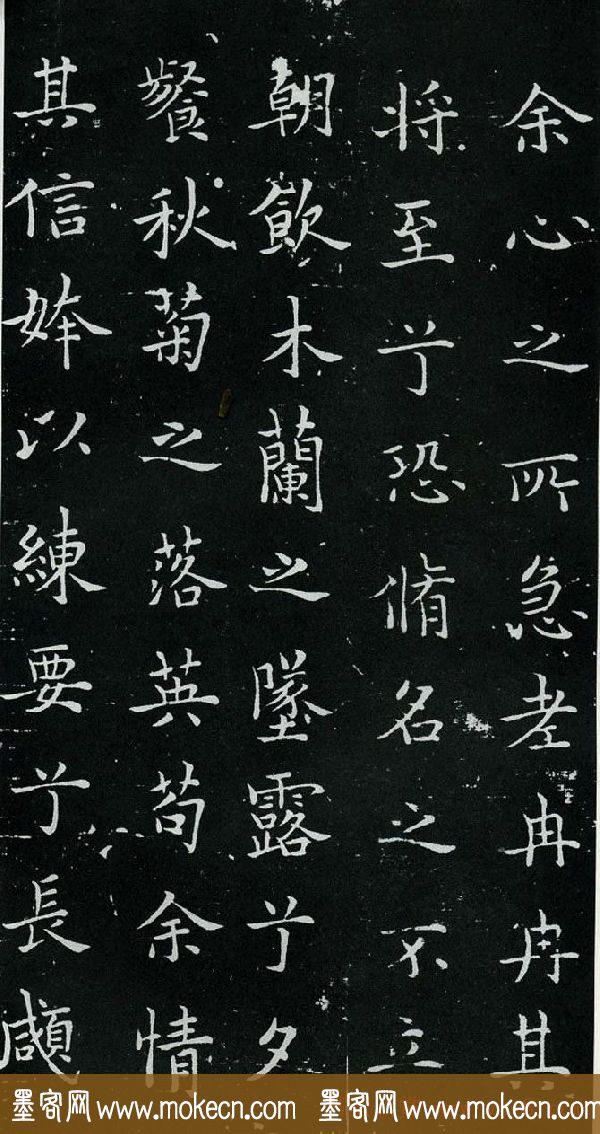 余心之所急老冉冉其
将至兮恐脩名之不立
朝飲木蘭之墜露兮夕
餐秋菊之落英苟余情
其信姱以練要兮長顑
墨客网 www.mokecn.com 墨客网 www.mokecn.com